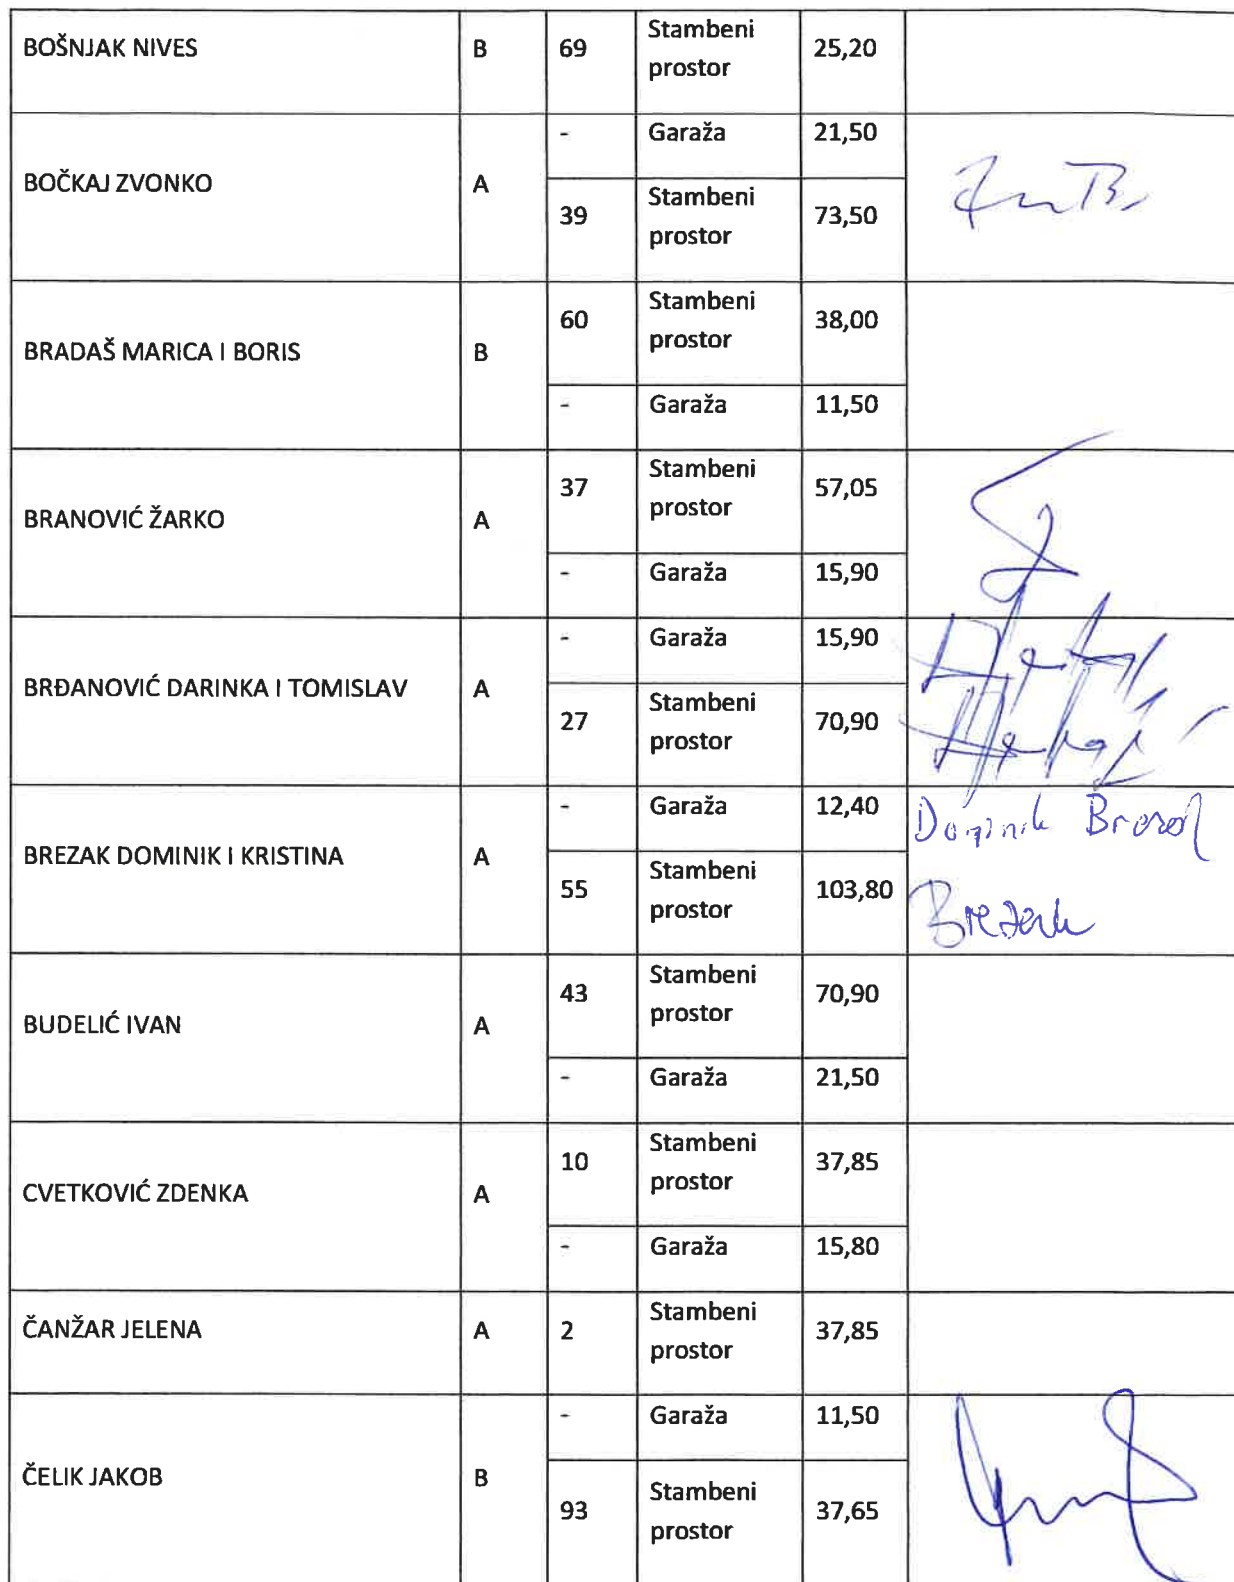 BOŠNJAK NIVES B 69 Stambeni prostor 25,20
BOČKAJ ZVONKO A - Garaža 21,50
39 Stambeni prostor 73,50
BRADAŠ MARICA I BORIS B 60 Stambeni prostor 38,00
- Garaža 11,50
BRANOVIĆ ŽARKO A 37 Stambeni prostor 57,05
- Garaža 15,90
BRĐANOVIĆ DARINKA I TOMISLAV A - Garaža 15,90
27 Stambeni prostor 70,90
BREZAK DOMINIK I KRISTINA A - Garaža 12,40 Dominik Brezak
55 Stambeni prostor 103,80 Brezak
BUDELIĆ IVAN A 43 Stambeni prostor 70,90
- Garaža 21,50
CVETKOVIĆ ZDENKA A 10 Stambeni prostor 37,85
- Garaža 15,80
ČANŽAR JELENA A 2 Stambeni prostor 37,85
ČELIK JAKOB B - Garaža 11,50
93 Stambeni prostor 37,65